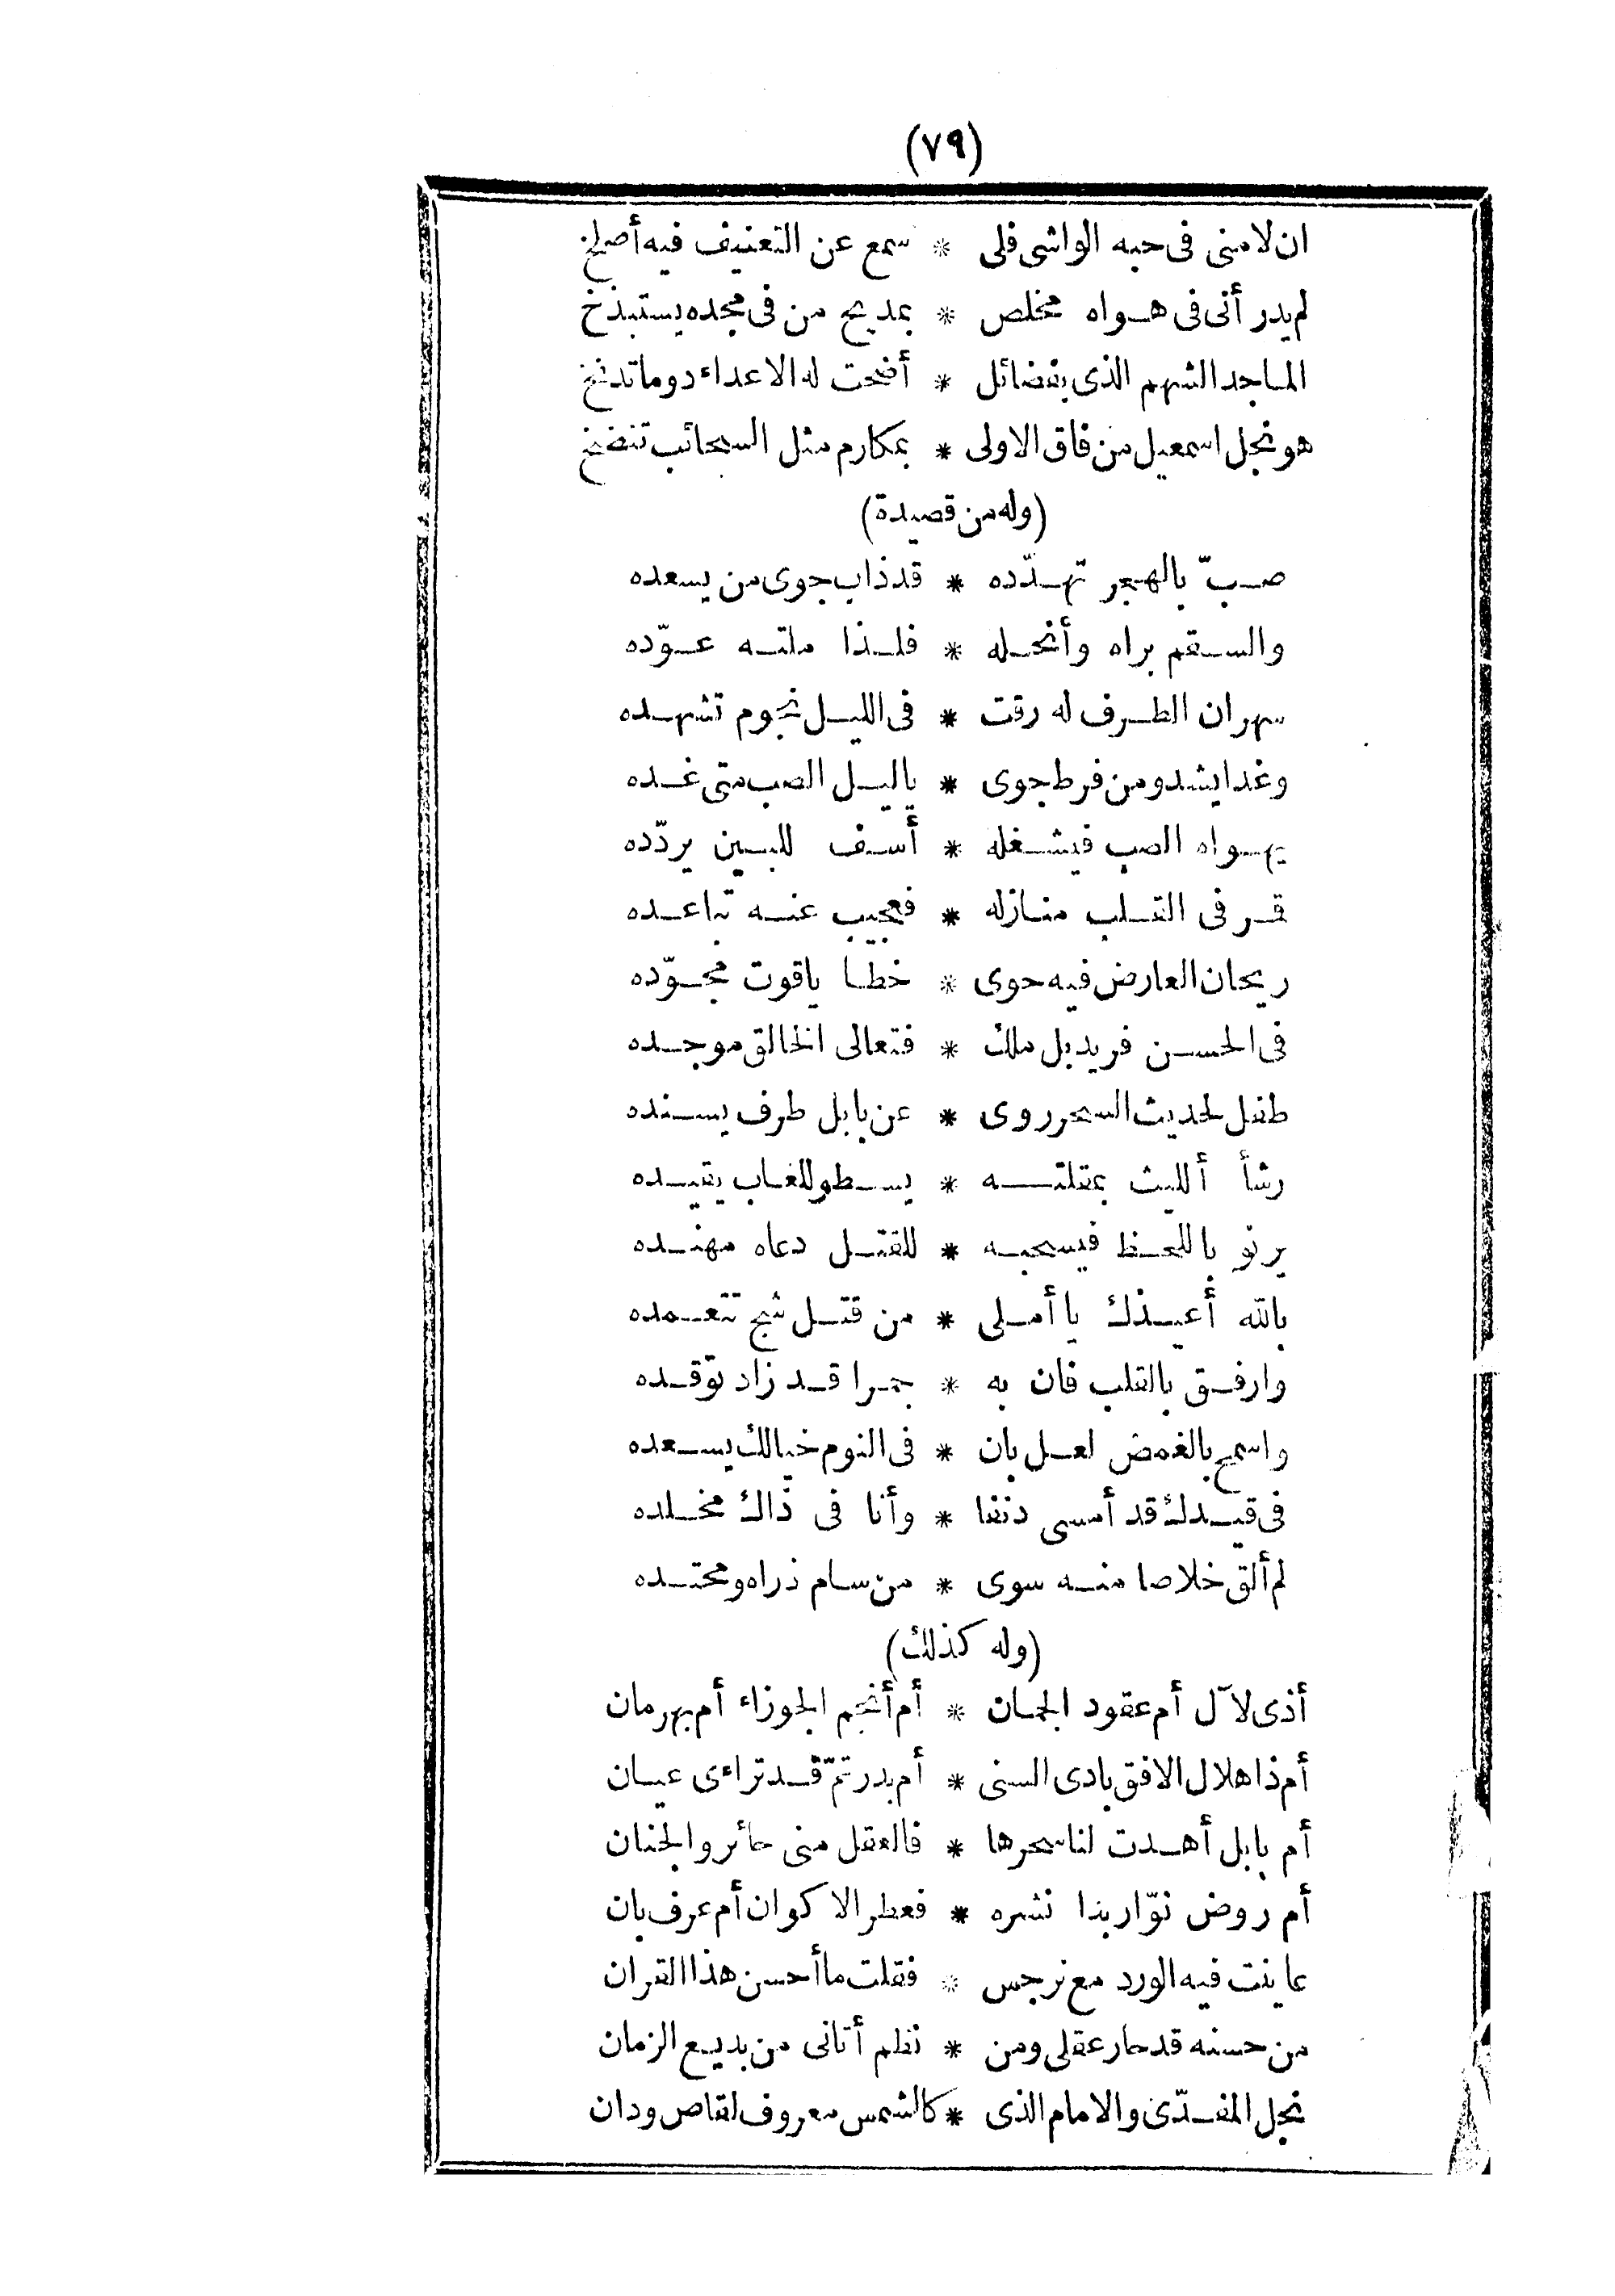 (٧٩)
ان لامنى فى حبه الواشى فلى * سمع عن التعنيف فيه أصلخ
لم يدر أنى فى هواه مخلص * بمديح من فى مجده يستبذخ
الماجد الشهم الذى بفضائل * أضحت له الاعداء دوما تدنخ
هو نجل اسمعيل من فاق الاولى * بمكارم مثل السحائب تنضخ
(وله من قصيدة)
صبّ بالهجر تهدّده * قد ذاب جوى من يسعده
والسقم براه وأنحله * فلذا ملته عوّده
سهران الطرف له رقت * فى الليل نجوم تشهده
وغدا يشدو من فرط جوى * ياليل الصب متى غده
يهواه الصب فيشغله * أسف للبين يردّده
قمر فى القلب منازله * فعجيب عنه تباعده
ريحان العارض فيه حوى * خطا ياقوت مجوّده
فى الحسن فريد بل ملك * فتعالى الخالق موجده
طفل لحديث السحر روى * عن بابل طرف يسنده
رشأ ألليث بمقلته * يسطو للغاب يقيده
يرنو باللحظ فيسحبه * للقتل دعاه مهنده
بالله أعيذك يا أملى * من قتل شج تتعمده
وارفق بالقلب فان به * جمرا قد زاد توّقده
واسمح بالغمض لعل بان * فى النوم خيالك يسعده
فى قيدك قد أمسى دنفا * وأنا فى ذاك مخلده
لم ألق خلاصا منه سوى * من سام ذراه ومحتده
(وله كذلك)
أذى لآل أم عقود الجمان * أم أنجم الجوزاء أم بهرمان
أم ذا هلال الافق بادى السنى * أم بدر تمّ قد تراءى عيان
أم بابل أهدت لنا سحرها * فالعقل منى حائر والجنان
أم روض نوّار بذا نشره * فعطر الاكوان أم عرف بان
عاينت فيه الورد مع نرجس * فقلت ما أحسن هذا القران
من حسنه قد حار عقلى ومن * نظم أتانى من بديع الزمان
نجل المفدّى والامام الذى * كالشمس معروف لقاص ودان